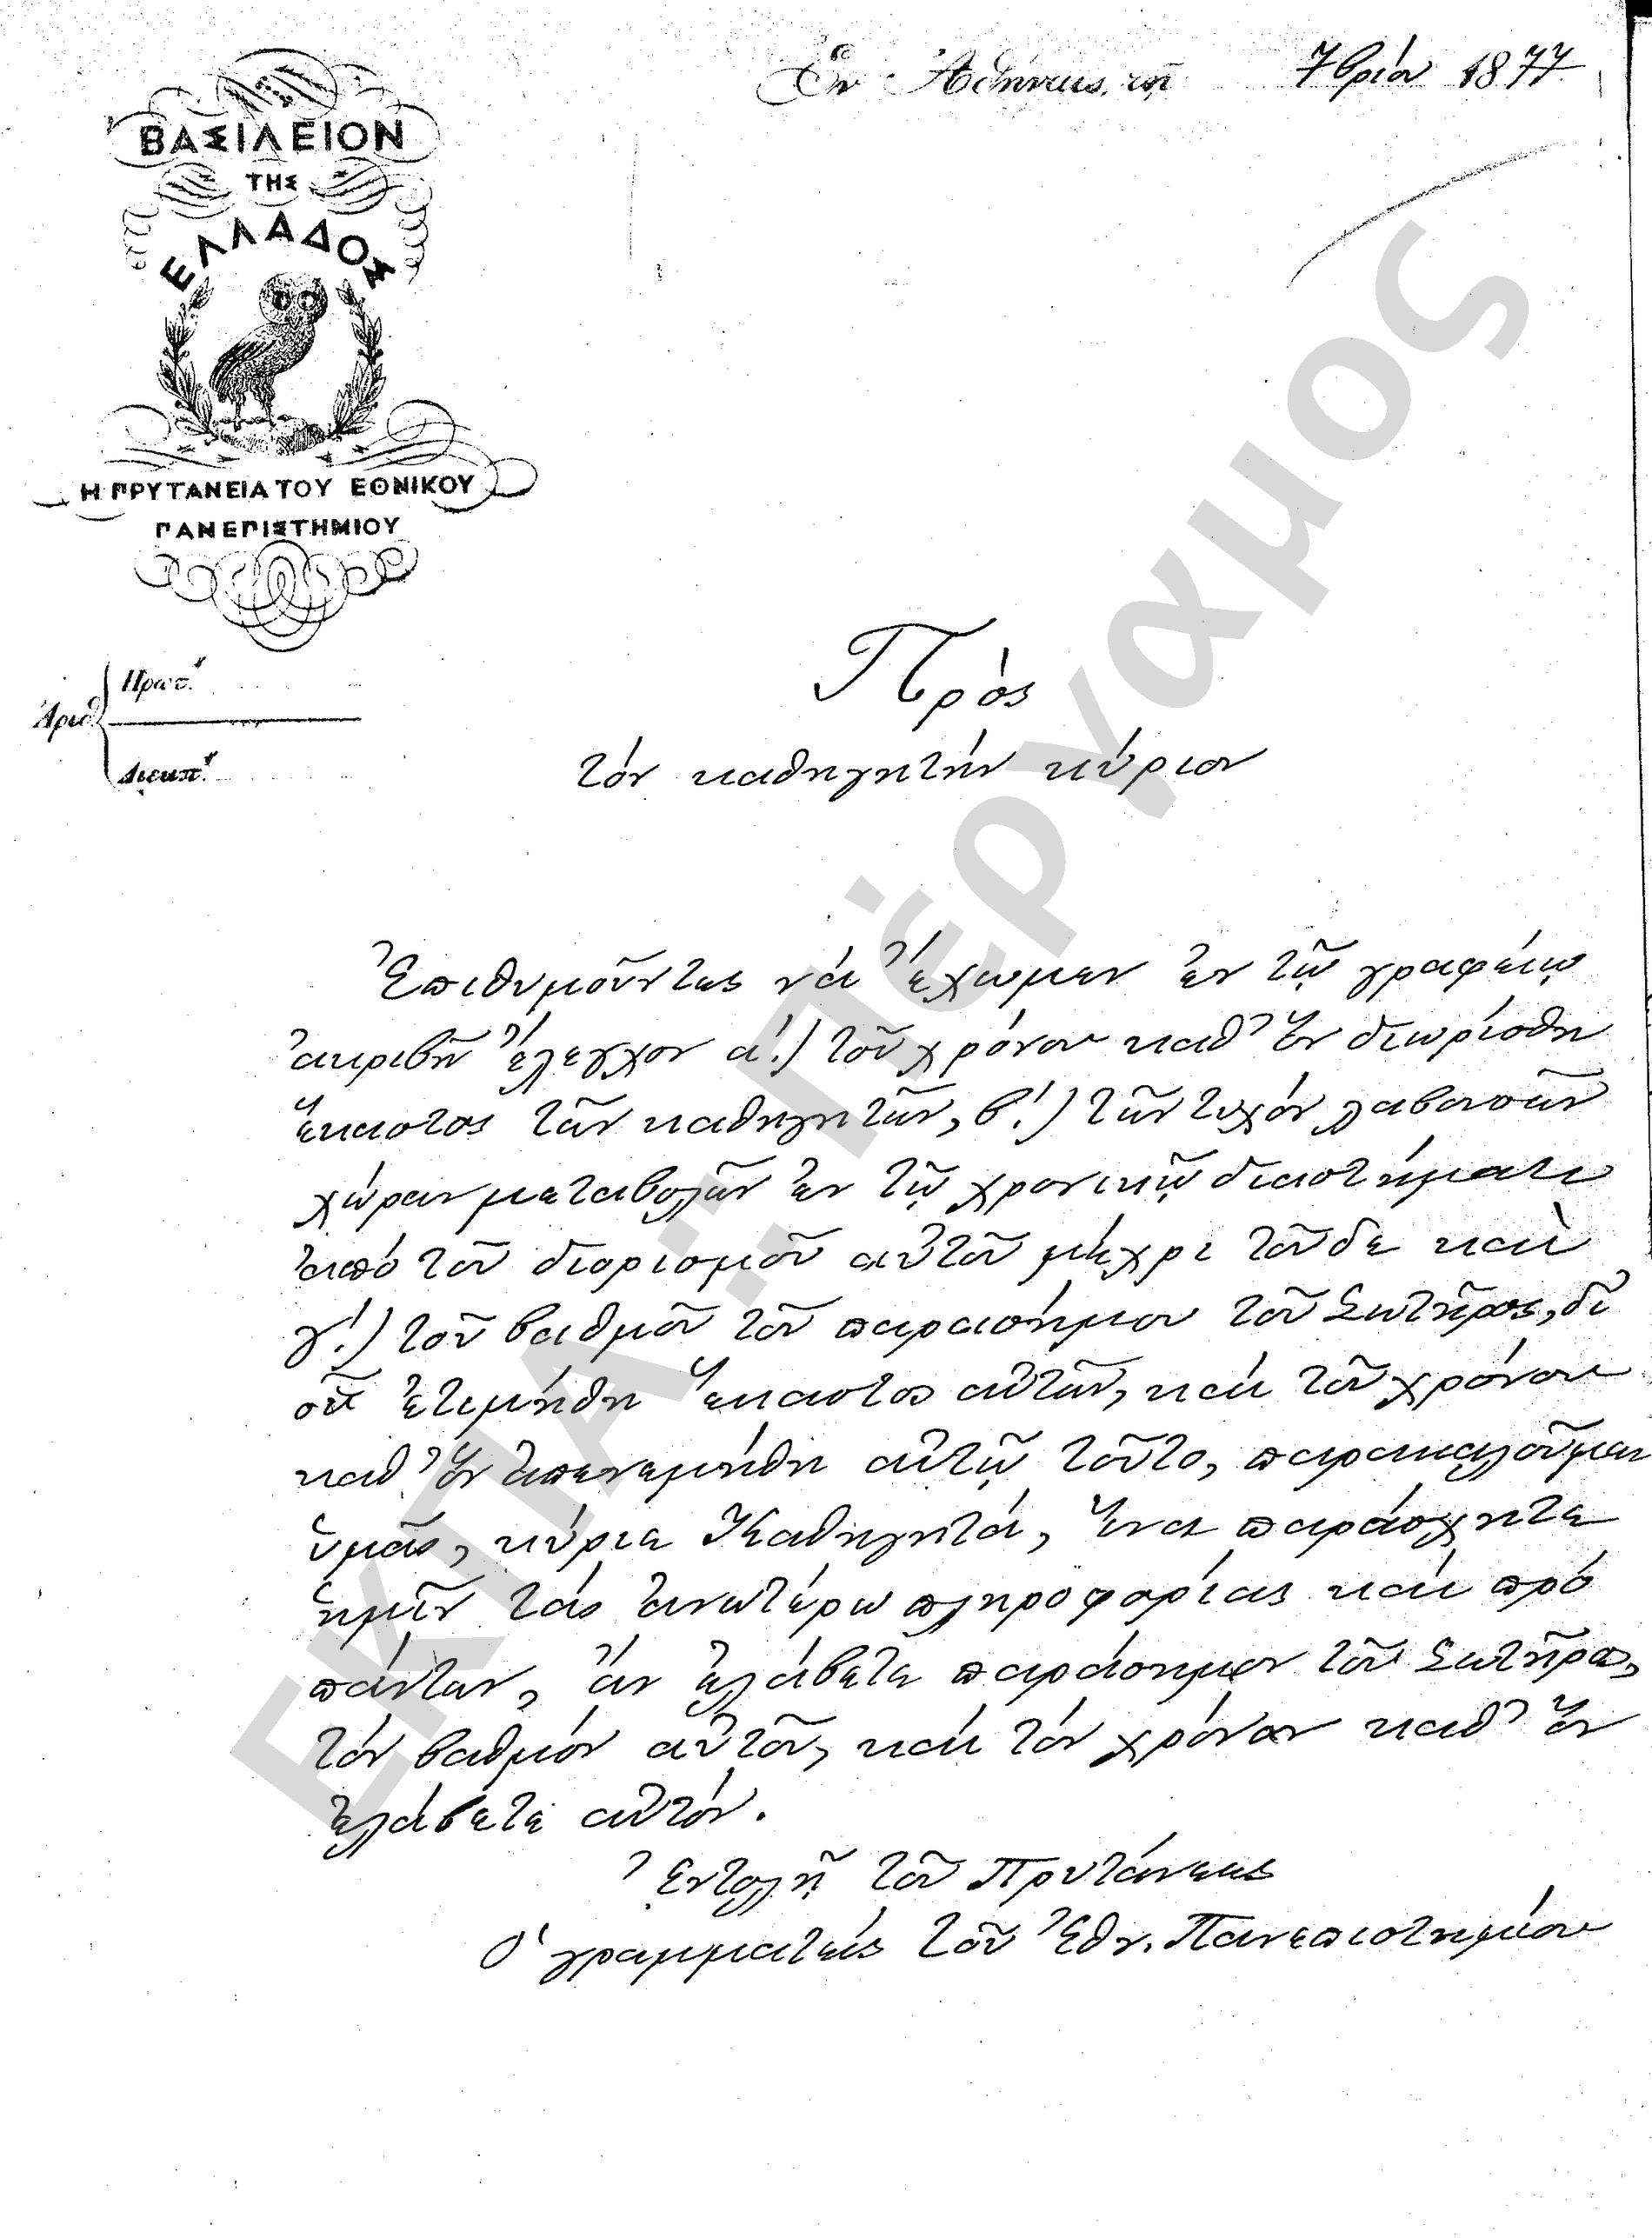 Ἐν Ἀθήναις, τῇ 7βρίου 1877
ΒΑΣΙΛΕΙΟΝ
ΤΗΣ
ΕΛΛΑΔΟΣ
Η ΠΡΥΤΑΝΕΙΑ ΤΟΥ ΕΘΝΙΚΟΥ
ΠΑΝΕΠΙΣΤΗΜΙΟΥ
Πρωτ.
Ἀριθ.
Διεκπ.
Πρὸς
τὸν καθηγητὴν κύριον
Ἐπιθυμοῦντες νὰ ἔχωμεν ἐν τῷ γραφείῳ
ἀκριβῆ ἔλεγχον α΄.) τοῦ χρόνου καθ' ὃν διωρίσθη
ἕκαστος τῶν καθηγητῶν, β΄.) τῶν τυχὸν λαβουσῶν
χώραν μεταβολῶν ἐν τῷ χρονικῷ διαστήματι
ἀπὸ τοῦ διορισμοῦ αὐτοῦ μέχρι τοῦδε καὶ
γ΄.) τοῦ βαθμοῦ τοῦ παρασήμου τοῦ Σωτῆρος, δι'
οὗ ἐτιμήθη ἕκαστος αὐτῶν, καὶ τοῦ χρόνου
καθ' ὃν ἀπενεμήθη αὐτῷ τοῦτο, παρακαλοῦμεν
ὑμᾶς, κύριε Καθηγητά, ἵνα παράσχητε
ἡμῖν τὰς ἀνωτέρω πληροφορίας καὶ πρὸ
πάντων, ἂν ἐλάβετε παράσημον τοῦ Σωτῆρος,
τὸν βαθμὸν αὐτοῦ, καὶ τὸν χρόνον καθ' ὃν
ἐλάβετε αὐτόν.
Ἐντολῇ τοῦ Πρυτάνεως
Ὁ γραμματεὺς τοῦ Ἐθν. Πανεπιστημίου
ΕΚΠΑ: Πέργαμος